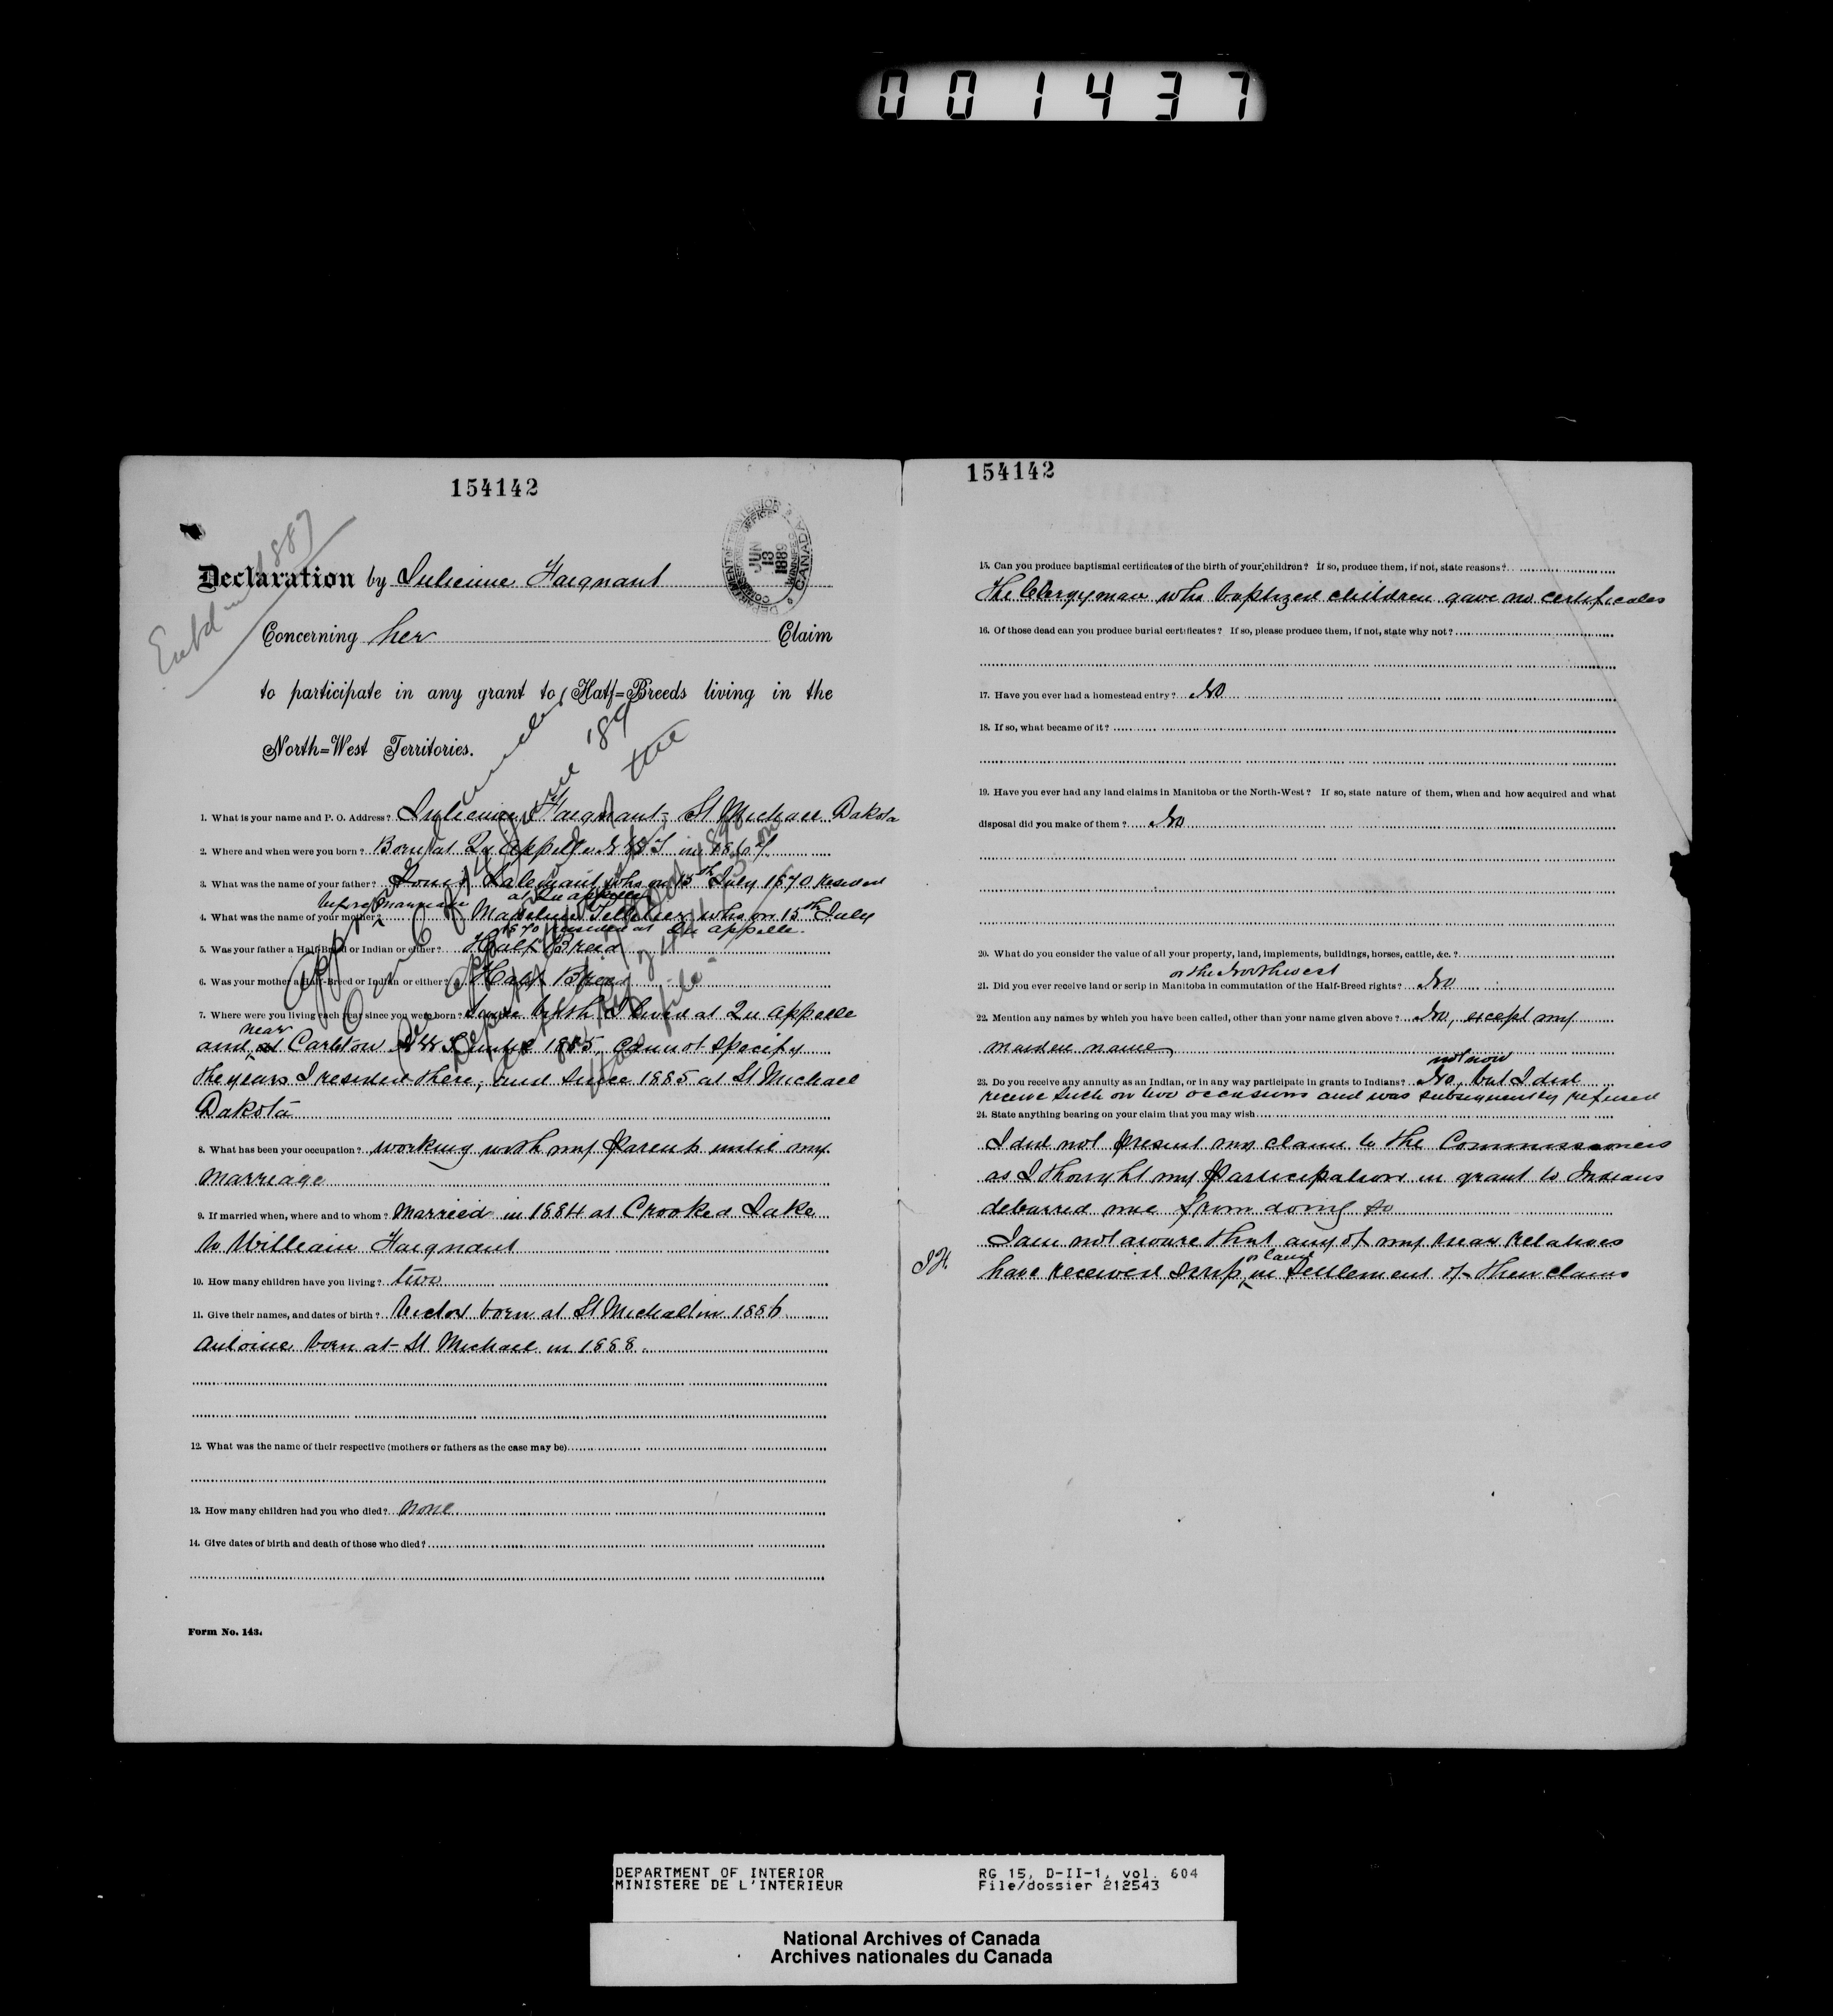 001437
154142
DEPARTMENT OF INTERIOR
JUN
13
1889
WINNIPEG
CANADA
Declaration by Julienne Haignant
Concerning her Claim
to participate in any grant to Half=Breeds living in the
North=West Territories.
1. What is your name and P. O. Address? Julienne Haignant - St Michael Dakota
2. Where and when were you born? Born at Qu Appelle N W T in
3. What was the name of your father? Louis who on 15th July 1870 resided
at Qu appelle
before marriage
4. What was the name of your mother? Madeline Pelletier who on 15th July
1870 resided at Qu appelle.
5. Was your father a Half-Breed or Indian or either? Half Breed
6. Was your mother a Half-Breed or Indian or either? Half Breed
7. Where were you living each year since you were born? Since birth I lived at Qu appelle
near
and at Carlton N W T until 1885, cannot specify
the years I resided there, and since 1885 at St Michael
Dakota
8. What has been your occupation? working with my parents until my
marriage
9. If married when, where and to whom? Married in 1884 at Crooked Lake
to William Haignant
10. How many children have you living? two
11. Give their names, and dates of birth? Victor born at St Michael in 1886
Antoine born at St Michael in 1888
12. What was the name of their respective (mothers or fathers as the case may be)
13. How many children had you who died? none
14. Give dates of birth and death of those who died?
Form No. 143.
154142
15. Can you produce baptismal certificates of the birth of your children? If so, produce them, if not, state reasons?
The Clergyman who baptized children gave no certificates
16. Of those dead can you produce burial certificates? If so, please produce them, if not, state why not?
17. Have you ever had a homestead entry? No
18. If so, what became of it?
19. Have you ever had any land claims in Manitoba or the North-West? If so, state nature of them, when and how acquired and what
disposal did you make of them? No
20. What do you consider the value of all your property, land, implements, buildings, horses, cattle, &c. ?
or the Northwest
21. Did you ever receive land or scrip in Manitoba in commutation of the Half-Breed rights? No
22. Mention any names by which you have been called, other than your name given above? No, except my
maiden name
not now
23. Do you receive any annuity as an Indian, or in any way participate in grants to Indians? No, but I did
receive such on two occasions and was subsequently refused
24. State anything bearing on your claim that you may wish
I did not present my claim to the Commissioners
as I thought my participation in grant to Indians
debarred me from doing so
I am not aware that any of my near relatives
or land
J H. have received scrip in settlement of their claims
DEPARTMENT OF INTERIOR
MINISTERE DE L'INTERIEUR
RG 15, D-II-1, vol. 604
File/dossier 212543
National Archives of Canada
Archives nationales du Canada